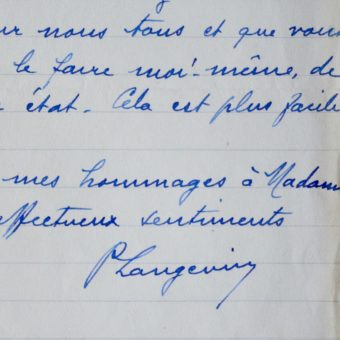 ur nous tous et que vous
le faire moi-même, de
état. Cela est plus facile
mes hommages à Madam
affectueux sentiments
P Langevin